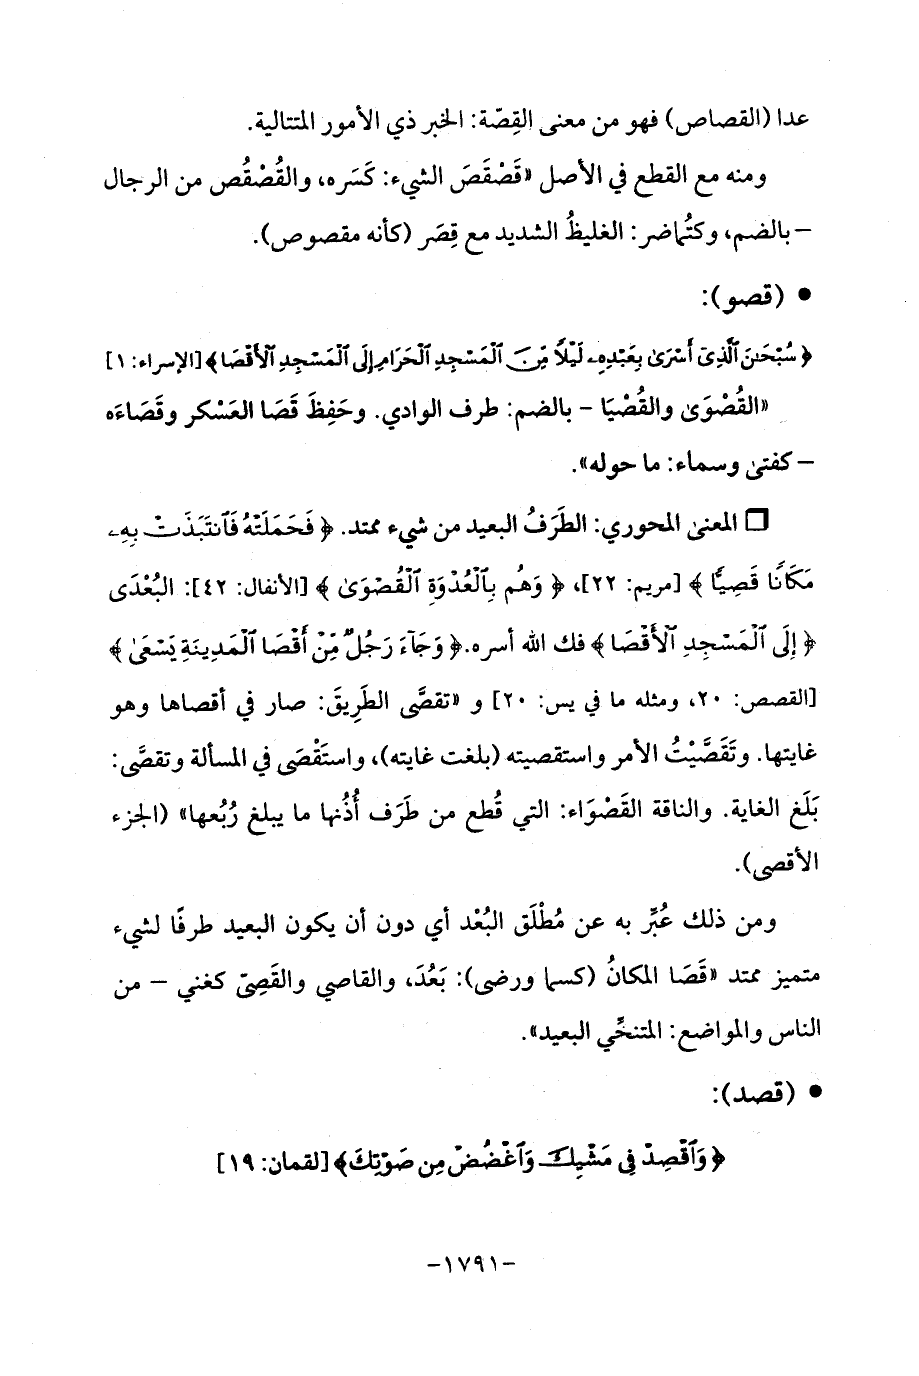 عدا (القصاص) فهو من معنى القِصّة: الخبر ذي الأمور المتتالية.
ومنه مع القطع في الأصل «قَصْقَصَ الشيء: كَسَره، والقُصْقُص من الرجال
– بالضم، وكتُماضر: الغليظُ الشديد مع قِصَر (كأنه مقصوص).
• (قصو):
﴿سُبْحَٰنَ ٱلَّذِىٓ أَسْرَىٰ بِعَبْدِهِۦ لَيْلًا مِّنَ ٱلْمَسْجِدِ ٱلْحَرَامِ إِلَى ٱلْمَسْجِدِ ٱلْأَقْصَا﴾ [الإسراء: ١]
«القُصْوَىٰ والقُصْيَا – بالضم: طرف الوادي. وحَفِظَ قَصَا العَسْكر وقَصَاءَه
– كفتىٰ وسماء: ما حوله».
❑ المعنىٰ المحوري: الطَرَفُ البعيد من شيء ممتد. ﴿فَحَمَلَتْهُ فَٱنتَبَذَتْ بِهِۦ
مَكَانًا قَصِيًّا﴾ [مريم: ٢٢]، ﴿وَهُم بِٱلْعُدْوَةِ ٱلْقُصْوَىٰ﴾ [الأنفال: ٤٢]: البُعْدَى
﴿إِلَى ٱلْمَسْجِدِ ٱلْأَقْصَا﴾ فك الله أسره. ﴿وَجَآءَ رَجُلٌ مِّنْ أَقْصَا ٱلْمَدِينَةِ يَسْعَىٰ﴾
[القصص: ٢٠، ومثله ما في يس: ٢٠] و «تقصَّى الطَرِيقَ: صار في أقصاها وهو
غايتها. وتَقَصَّيْتُ الأمر واستقصيته (بلغت غايته)، واستَقْصَى في المسألة وتقصَّى:
بَلَغ الغاية. والناقة القَصْوَاء: التي قُطع من طَرَف أُذُنها ما يبلغ رُبُعها» (الجزء
الأقصى).
ومن ذلك عُبِّر به عن مُطْلَق البُعْد أي دون أن يكون البعيد طرفًا لشيء
متميز ممتد «قَصَا المكانُ (كسما ورضي): بَعُدَ، والقاصي والقَصِيّ كغني – من
الناس والمواضع: المتنحِّي البعيد».
• (قصد):
﴿وَٱقْصِدْ فِى مَشْيِكَ وَٱغْضُضْ مِن صَوْتِكَ﴾ [لقمان: ١٩]
-١٧٩١-